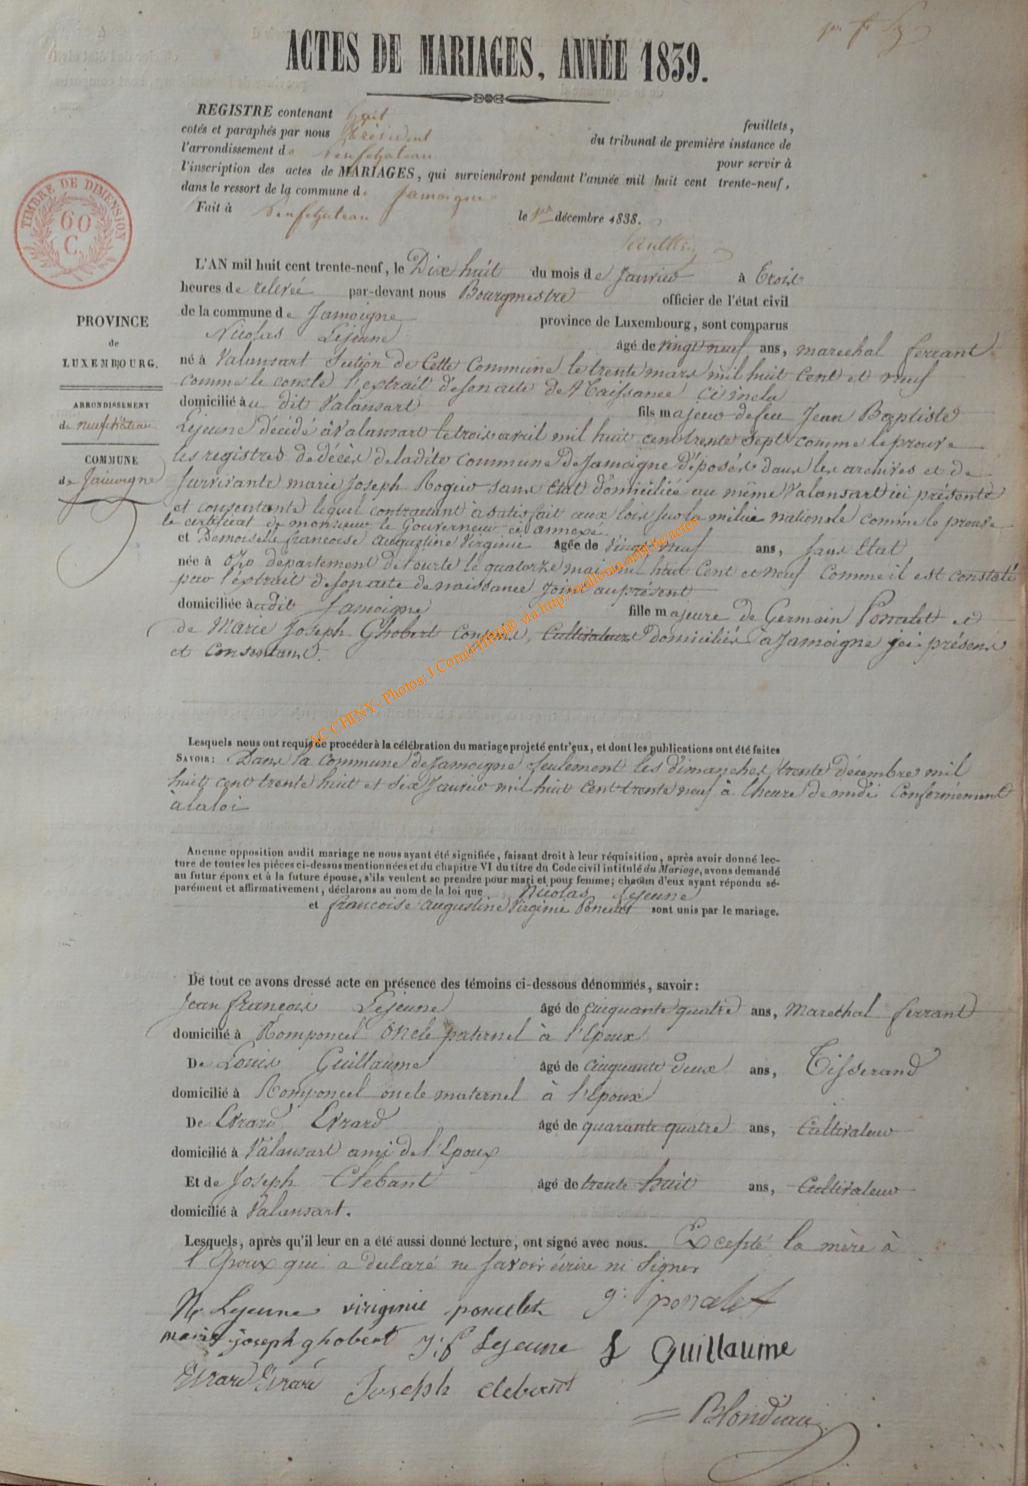 ACTES DE MARIAGES, ANNÉE 1839.
REGISTRE contenant huit feuillets,
cotés et paraphés par nous Président du tribunal de première instance de
l'arrondissement de neufchateau pour servir à
l'inscription des actes de MARIAGES, qui surviendront pendant l'année mil huit cent trente-neuf,
dans le ressort de la commune de Jamoigne
Fait à Neufchateau le 1er décembre 1838.
TIMBRE DE DIMENSION
60
C.
L'AN mil huit cent trente-neuf, le Dix huit du mois de Janvier à trois
heures de relevée par-devant nous Bourgmestre officier de l'état civil
de la commune de Jamoigne province de Luxembourg, sont comparus
Nicolas Lejeune âgé de vingt neuf ans, marechal ferrant
né à Valansart Section de Cette Commune le trente mars mil huit Cent et neuf
comme le constte l'extrait de son acte de Naissance ci inclu
domicilié au dit Valansart fils majeur de feu Jean Baptiste
Lejeune décédé à Valansart le trois avril mil huit cent trente Sept comme le prouve
les registres de décès de la dite commune de Jamoigne déposés dans les archives et de
survivante marie Joseph Rogier sans Etat domiciliée au même Valansart ici présente
et consentante lequel contractant a satisfait aux lois sur la milice nationale comme le prouve
le certificat de monsieur le Gouverneur ci annexé
et Demoiselle francoise augustine Virginie âgée de Vingt neuf ans, sans Etat
née à département de l'ourte le quatorze mai mil huit Cent et neuf Comme il est constaté
par l'extrait de son acte de naissance joint au présent
domiciliée audit Jamoigne fille majeure de Germain Poncelet et
de Marie Joseph Ghobert conjoins, Cultivateurs domiciliés à Jamoigne ici présens
et Consentans.
PROVINCE
de
LUXEMBOURG.
ARRONDISSEMENT
de neufchâteau
COMMUNE
de Jamoigne
AC CHINY - Photos: J.Cornil
Lesquels nous ont requis de procéder à la célébration du mariage projeté entr'eux, et dont les publications ont été faites
SAVOIR: Dans la commune de Jamoigne seulement les dimanches trente décembre mil
huit cent trente huit et six Janvier mil huit Cent trente neuf à l'heure de midi Conformément
à la loi
Aucune opposition audit mariage ne nous ayant été signifiée, faisant droit à leur réquisition, après avoir donné lec-
ture de toutes les pièces ci-dessus mentionnées et du chapitre VI du titre du Code civil intitulé du Mariage, avons demandé
au futur époux et à la future épouse, s'ils veulent se prendre pour mari et pour femme; chacun d'eux ayant répondu sé-
parément et affirmativement, déclarons au nom de la loi que Nicolas Lejeune
et francoise augustine Virginie Poncelet sont unis par le mariage.
De tout ce avons dressé acte en présence des témoins ci-dessous dénommés, savoir:
Jean francois Lejeune âgé de cinquante quatre ans, Marechal ferrant
domicilié à Romponcel oncle paternel à l'Epoux
De Louis Guillaume âgé de cinquante deux ans, Tisserand
domicilié à Romponcel oncle maternel à l'Epoux
De Evrard Evrard âgé de quarante quatre ans, Cultivateur
domicilié à Valansart ami de l'Epoux
Et de Joseph Clebant âgé de trente huit ans, Cultivateur
domicilié à Valansart.
Lesquels, après qu'il leur en a été aussi donné lecture, ont signé avec nous. Excepté la mère à
l'Epoux qui a declaré ne savoir écrire ni signer
N. Lejeune virginie poncelet g. poncelet
marie joseph ghobert J: f Lejeune L Guillaume
Evrard Evrard Joseph
Blondiaux